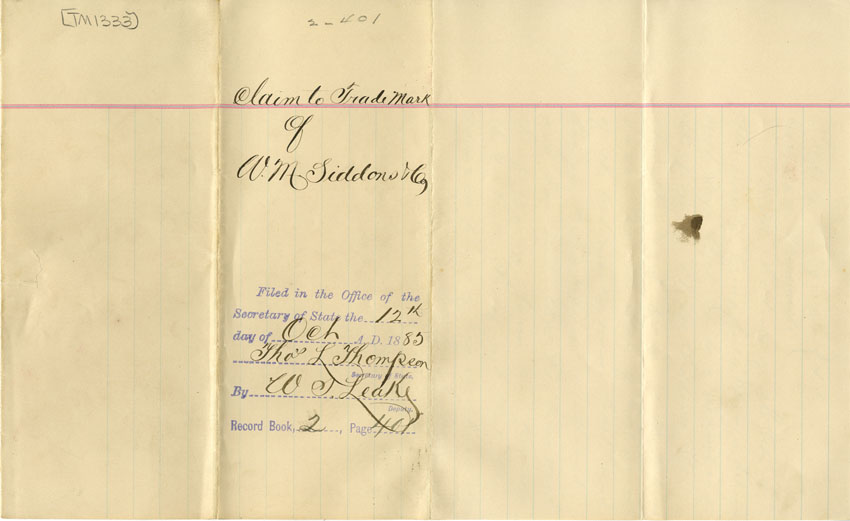 [TM1333]
2-401
Claim to Trade Mark
of
W. M. Siddons & Co,
Filed in the Office of the
Secretary of State the 12th
day of Oct A. D. 1885
Thos L Thompson
Secretary of State.
By W T. Leake
Deputy.
Record Book, 2, Page 401